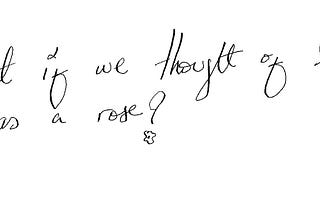 t if we thought of
as a rose?